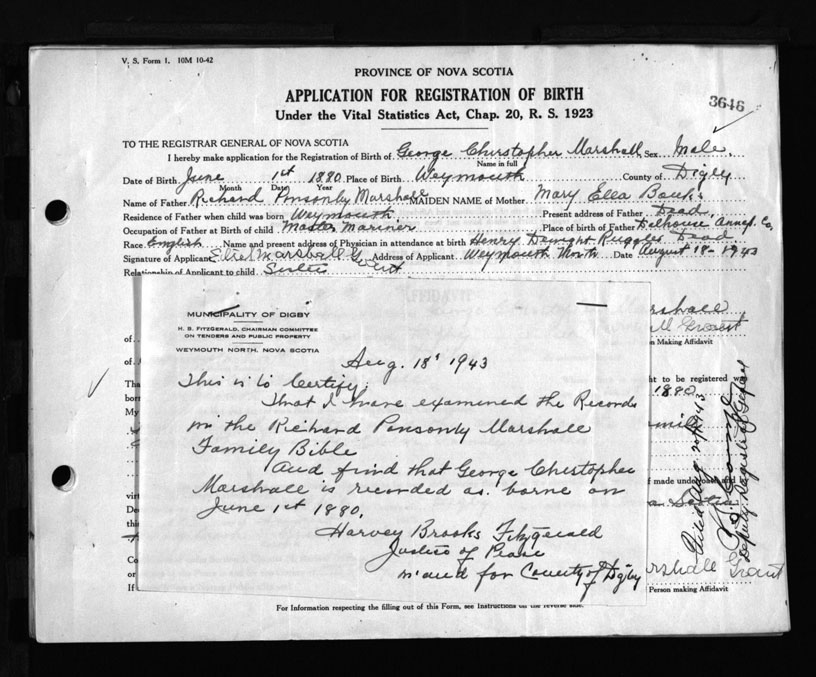 V. S. Form 1. 10M 10-42
PROVINCE OF NOVA SCOTIA
APPLICATION FOR REGISTRATION OF BIRTH
3646
Under the Vital Statistics Act, Chap. 20, R. S. 1923
TO THE REGISTRAR GENERAL OF NOVA SCOTIA
I hereby make application for the Registration of Birth of George Christopher Marshall Sex Male.
Name in full
Date of Birth June 1st 1880 Place of Birth Weymouth County of Digby
Month Date Year
Name of Father Richard Ponsonby Marshall MAIDEN NAME of Mother Mary Ella
Residence of Father when child was born Weymouth. Present address of Father Dead.
Occupation of Father at Birth of child Master Mariner Place of Birth of Father Dalhousie Annap. Co.
Race English Name and present address of Physician in attendance at birth Henry Ruggles Dead
Signature of Applicant Marshall Grant Address of Applicant Weymouth North Date August 18 - 1943
Relationship of Applicant to child. Sister
MUNICIPALITY OF DIGBY
H. B. FITZGERALD, CHAIRMAN COMMITTEE
ON TENDERS AND PUBLIC PROPERTY
WEYMOUTH NORTH, NOVA SCOTIA
Aug. 18' 1943
This is to Certify;
That I have examined the Records
in the Richard Ponsonby Marshall
Family Bible
And find that George Christopher
Marshall is recorded as borne on
June 1st 1880.
Harvey Brooks Fitzgerald
Justice of Peace
in and for County of Digby
Marshall
Grant
on Making Affidavit
ht to be registered was
1880
f made under oath and by
Marshall Grant
Person making Affidavit
Filed Aug 1943
Deputy Registrar General
of
of
Tha
born
My
virt
De
the
Co
or
If
For Information respecting the filling out of this Form, see Instructions on the reverse side.